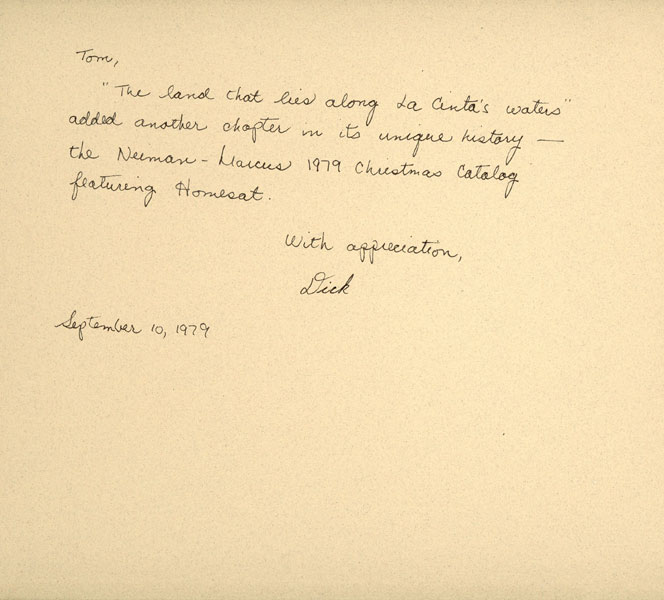 Tom,
"The land that lies along La Cinta's waters"
added another chapter in its unique history —
the Neiman-Marcus 1979 Christmas Catalog
featuring Homesat.
With appreciation,
Dick
September 10, 1979